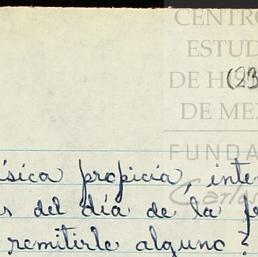 CENTRO
ESTUD
(23
DE H
DE ME
FUNDA
Carlos
ísica propicia, inte
s del día de la fe
remitirle alguno?